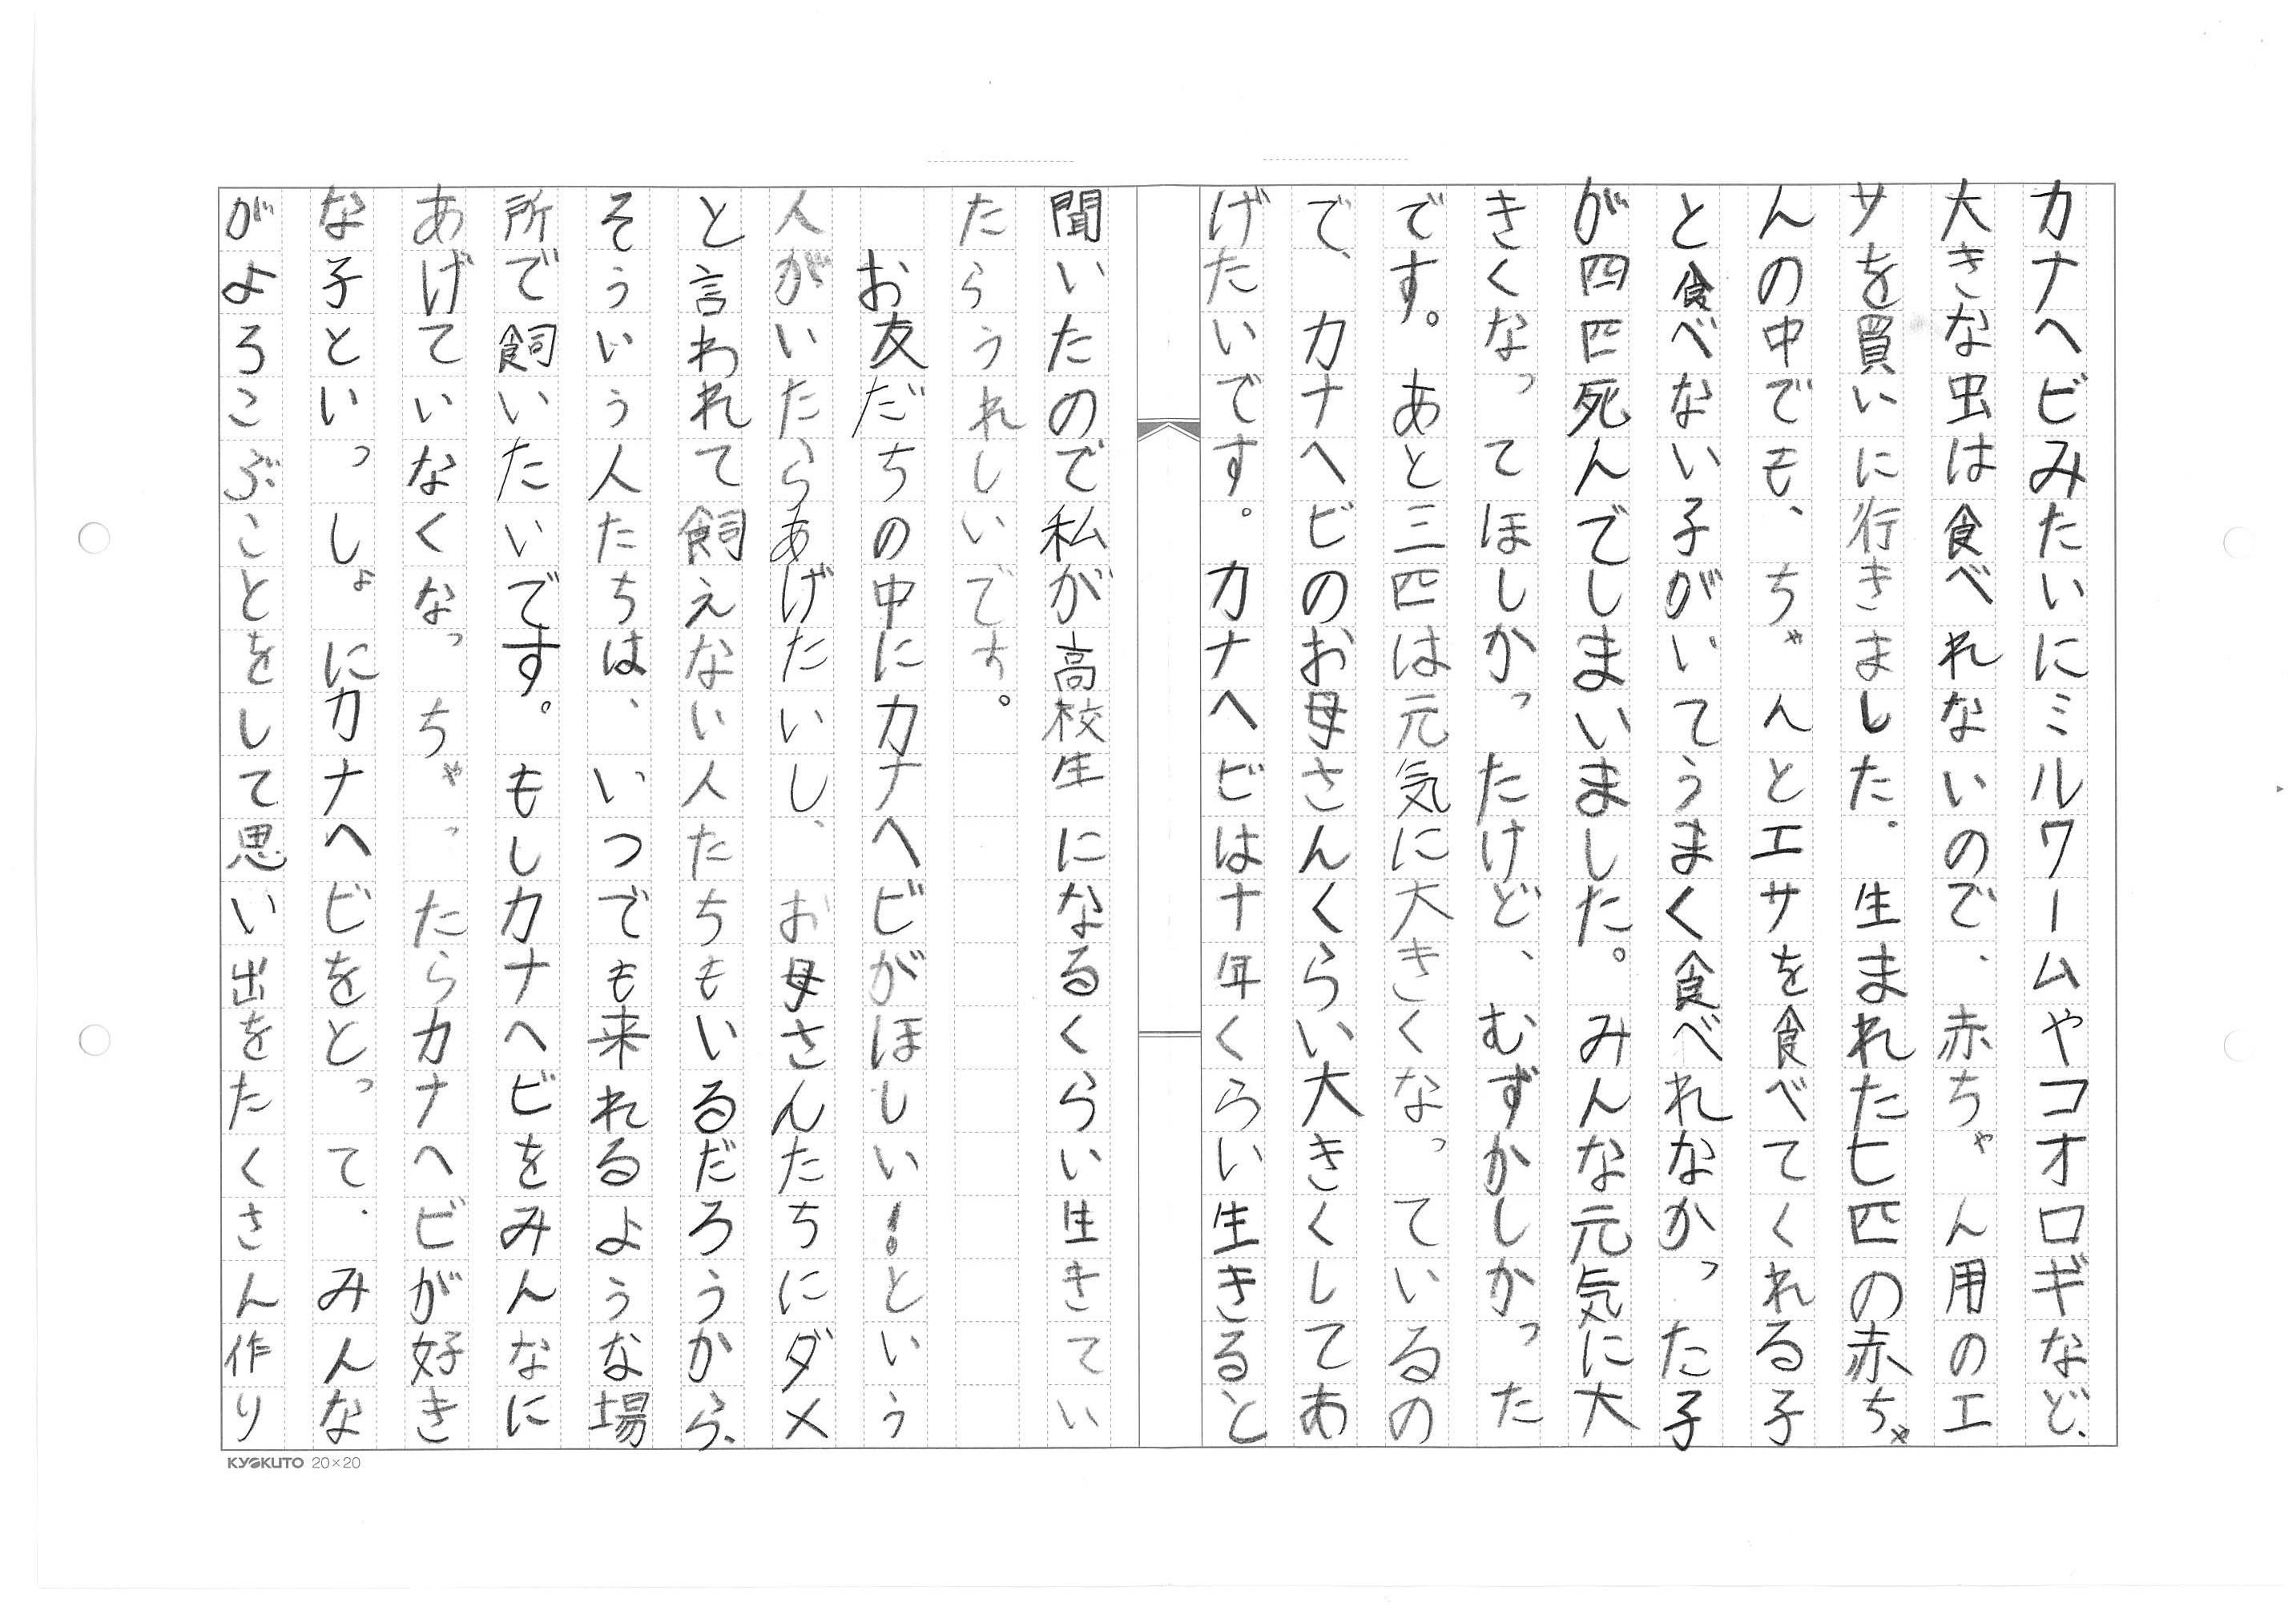 カナヘビみたいにミルワームやコオロギなど、
大きな虫は食べれないので、赤ちゃん用のエ
サを買いに行きました。生まれた七匹の赤ちゃ
んの中でも、ちゃんとエサを食べてくれる子
と食べない子がいてうまく食べれなかった子
が四匹死んでしまいました。みんな元気に大
きくなってほしかったけど、むずかしかった
です。あと三匹は元気に大きくなっているの
で、カナヘビのお母さんくらい大きくしてあ
げたいです。カナヘビは十年くらい生きると
聞いたので私が高校生になるくらい生きてい
たらうれしいです。
お友だちの中にカナヘビがほしい！という
人がいたらあげたいし、お母さんたちにダメ
と言われて飼えない人たちもいるだろうから、
そういう人たちは、いつでも来れるような場
所で飼いたいです。もしカナヘビをみんなに
あげていなくなっちゃったらカナヘビが好き
な子といっしょにカナヘビをとって、みんな
がよろこぶことをして思い出をたくさん作り
KYOKUTO 20×20